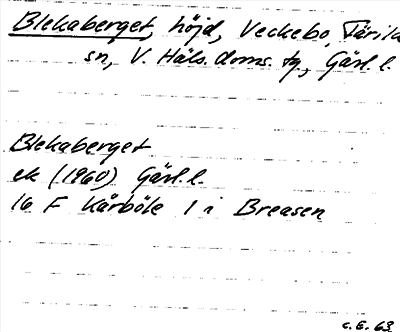 Blekaberget, höjd, Veckebo, Färila
sn, V. Häls. doms. tg, Gävl. l.
Blekaberget
ek (1960) Gävl. l.
16 F Kårböle 1 i Breasen
C. E. 63